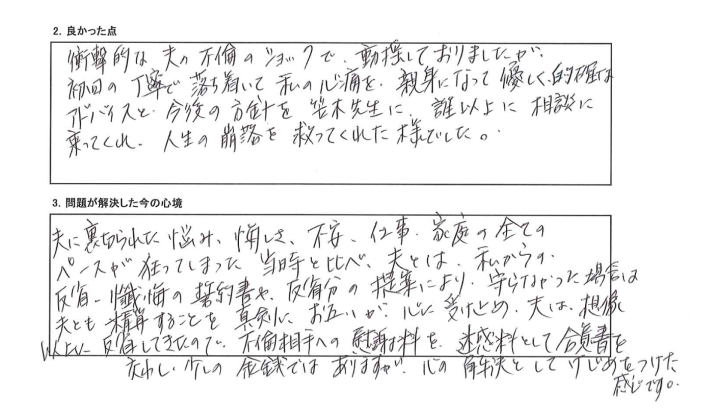 2. 良かった点
衝撃的な夫の不倫のショックで、動揺しておりましたが、
初回の丁寧で落ち着いて私の心痛を、親身になって優しく、的確な
アドバイスと今後の方針を笠木先生に、誰以上に相談に
乗ってくれ、人生の崩落を救ってくれた様でした。
3. 問題が解決した今の心境
夫に裏切られた悩み、悔しさ、不安、仕事、家庭の全ての
ペースが狂ってしまった当時と比べ、夫とは、私からの、
反省、懺悔の誓約書や、反省分の提案により、守らなかった場合は
夫とも精算することを真剣にお互いが、心に受けとめ、夫は、想像
以上に反省してきたので、不倫相手への慰謝料を、迷惑料として合意書を
交わし、少しの金銭ではありますが、心の解決としてけじめをつけた
感じです。